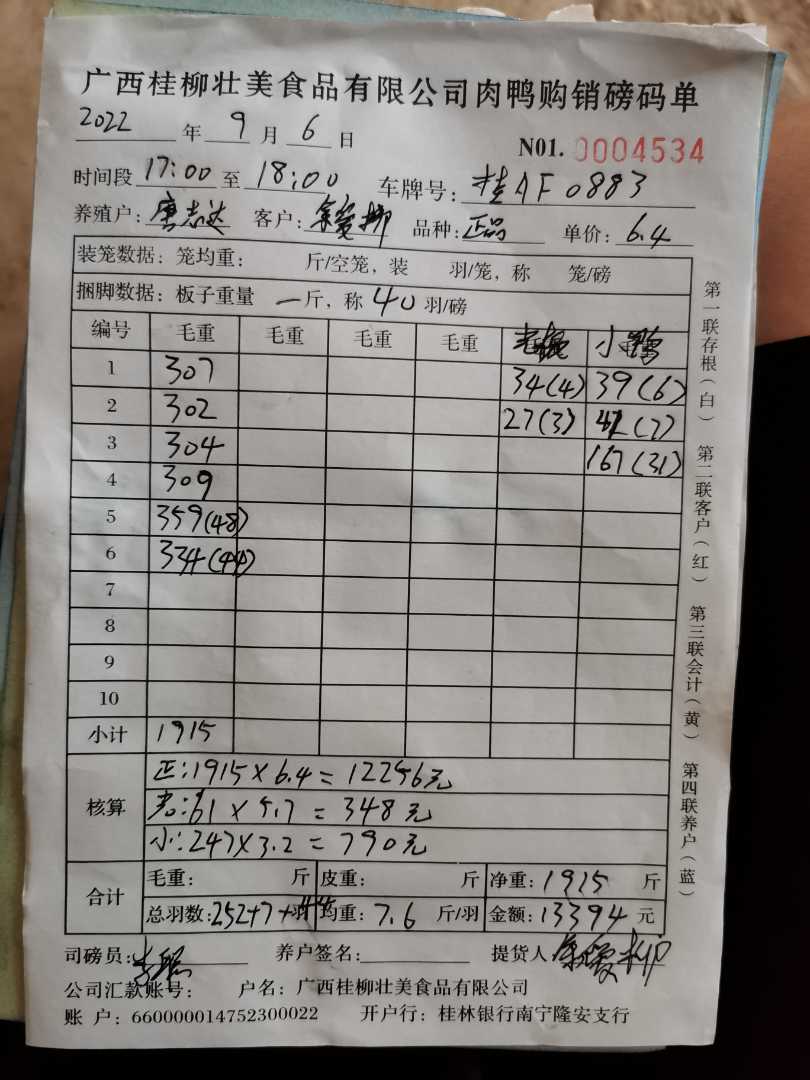 广西桂柳壮美食品有限公司肉鸭购销磅码单
2022 年 9 月 6 日 N01. 0004534
时间段 17:00 至 18:00 车牌号: 桂AF0883
养殖户: 唐志达 客户: 品种: 正品 单价: 6.4
装笼数据: 笼均重: 斤/空笼, 装 羽/笼, 称 笼/磅
捆脚数据: 板子重量 一 斤, 称 40 羽/磅
编号 毛重 毛重 毛重 毛重 小
1 307 34(4) 39(6)
2 302 27(3) (7)
3 304 167(31)
4 309
5 359(48)
6 334(44)
7
8
9
10
小计 1915
核算 正:1915×6.4=12256元
老:61×5.7=348元
小:247×3.2=790元
合计 毛重: 斤 皮重: 斤 净重: 1915 斤
总羽数: 252+7+44 均重: 7.6 斤/羽 金额: 13394 元
司磅员: 养户签名: 提货人
公司汇款账号: 户名: 广西桂柳壮美食品有限公司
账 户: 660000014752300022 开户行: 桂林银行南宁隆安支行
第一联存根(白) 第二联客户(红) 第三联会计(黄) 第四联养户(蓝)